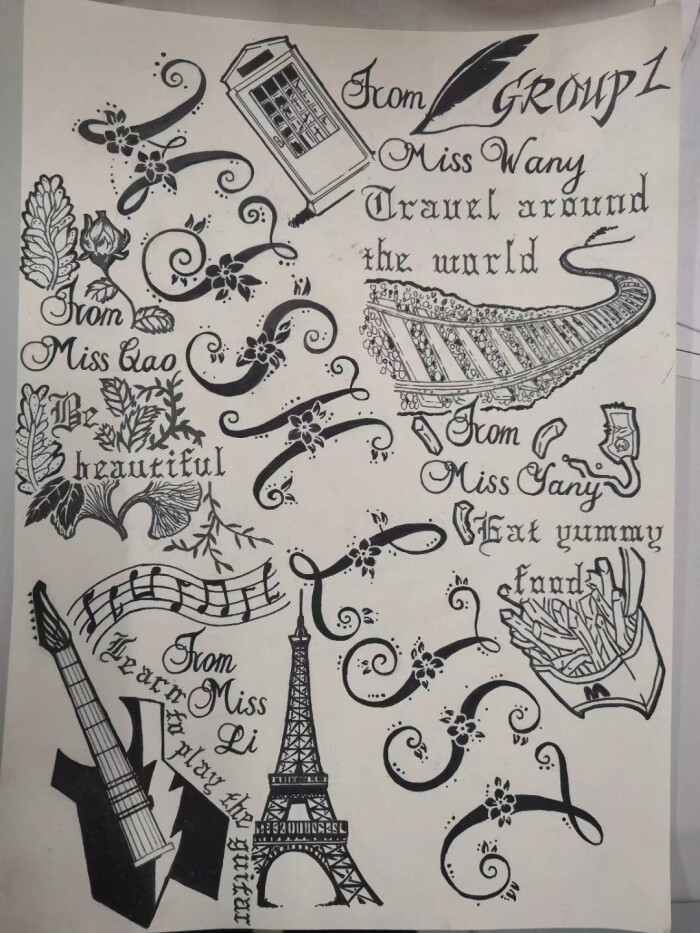 From GROUP 1
Miss Wany
Travel around
the world
From
Miss Gao
Be
beautiful
From
Miss Yany
Eat yummy
food
From
Miss
Li
Learn to play the guitar